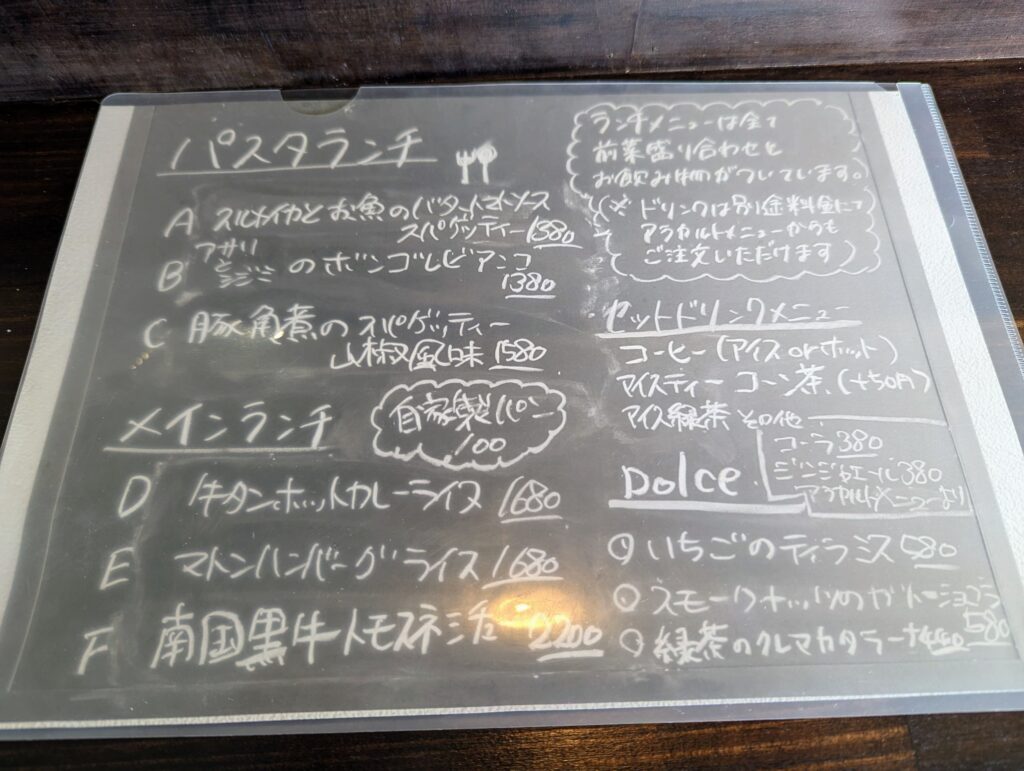 パスタランチ
A スルメイカとお魚のバタートマトソース
スパゲッティー 1380
B アサリとシジミのボンゴレビアンコ
1380
C 豚角煮のスパゲッティー
山椒風味 1580
自家製パン
100
メインランチ
D 牛タンホットカレーライス 1680
E マトンハンバーグライス 1680
F 南国黒牛トモスネ 2200
ランチメニューは全て
前菜盛り合わせと
お飲み物がついています。
(※ ドリンクは別途料金にて
アラカルトメニューからも
ご注文いただけます)
セットドリンクメニュー
コーヒー(アイス or ホット)
アイスティー コーン茶(+50円)
アイス緑茶 その他
コーラ 380
ジンジャエール 380
アラカルトメニューより
Dolce
いちごのティラミス 580
スモークナッツのガトーショコラ
580
緑茶のクレマカタラーナ